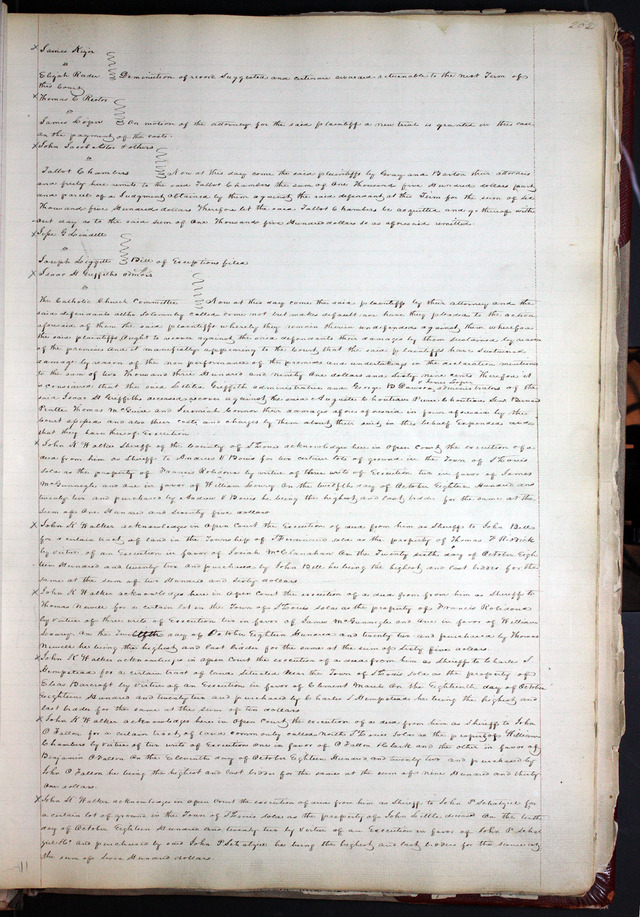 262
x James Keyr
vs
Elijah Rader Diminution of record Suggested and certiorari awarded returnable to the next Term of
this Court
x Thomas C Rector
vs
James Logan On motion of the attorney for the said plaintiff a new trial is granted in this case
on the payment of the costs.
x John Jacob Astor & others
vs
Talbot Chambers Now at this day come the said plaintiffs by Gray and Barton their attornies
and freely here remit to the said Talbot Chambers the sum of One Thousand five Hundred dollars part
and parcel of a Judgment obtained by them against the said defendant at this Term for the sum of six
Thousand five Hundred dollars Therefore let the said Talbot Chambers be acquitted and go thereof with
out day as to the said sum of One Thousand five Hundred dollars so as aforesaid remitted
x Jesse G Lindell
vs
Joseph Liggett Bill of Exceptions filed
x Isaac H Griffiths admors
vs
The Catholic Church Committee Now at this day come the said plaintiffs by their attorney and the
said defendants altho Solemnly called come not but makes default nor have they pleaded to the action
aforesaid of them the said plaintiffs whereby they remain therein undefended against them wherefore
the said plaintiffs ought to recover against the said defendants their damages by them sustained by reason
of the premises And it manifestly appearing to the Court that the said plaintiffs have sustained
damage by reason of the non performance of the promises and undertakings in the declaration mentioned
to the sum of two Thousand three Hundred and ninety One dollars and sixty nine cents Therefore it
is considered that the said Letitia Griffith administratrix and George administrators of the
said Isaac H Griffiths deceased recover against the said Auguste Chouteau Pierre Chouteau Senr Bernard
Pratte Thomas McGuire and Jeremiah Connor their damages aforesaid in form aforesaid by the
Court assessed and also their costs and charges by them about their suit in this behalf Expended and
that they have thereof Execution
x John K Walker Sheriff of the County of St Louis acknowledges here in Open Court the execution of a
deed from him as Sheriff to Andrew V Bonis for two certain lots of ground in the Town of St Louis
sold as the property of Francis Robidoux by virtue of three writs of Execution two in favor of James
McGunnegle and one in favor of William Lowry On the twelfth day of October Eighteen Hundred and
twenty two and purchased by Andrew V Bonis he being the highest and last bidder for the same at the
sum of One Hundred and seventy five dollars
x John K Walker acknowledges in Open Court the Execution of deed from him as Sheriff to John Bell
for a certain tract of land in the Township of St Ferdinand sold as the property of Thomas F Riddick
by virtue of an Execution in favor of Josiah McClanahan On the Twenty sixth day of October Eigh
teen Hundred and twenty two and purchased by John Bell he being the highest and last bidder for the
same at the sum of two Hundred and Sixty dollars
x John K Walker acknowledges here in Open Court the execution of a deed from him as Sheriff to
Thomas Newell for a certain lot in the Town of St Louis sold as the property of Francis Robidoux
by virtue of three writs of Execution two in favor of James McGunnegle and one in favor of William
Lowry On the day of October Eighteen Hundred and twenty two and purchased by Thomas
Newell he being the highest and last bidder for the same at the sum of Sixty five dollars
x John K Walker acknowledges in Open Court the Execution of a deed from him as Sheriff to Charles S
Hempstead for a certain tract of Land Situated Near the Town of St Louis sold as the property of
Elias Barcroft by virtue of an Execution in favor of Clement March On the Eighteenth day of October
Eighteen Hundred and twenty two and purchased by Charles S Hempstead he being the highest and
last bidder for the same at the sum of ten dollars
x John K Walker acknowledges here in Open Court the execution of a deed from him as Sheriff to John
O Fallon for a certain tract of land commonly called North St Louis Sold as the property of William
Chambers by virtue of two writs of Execution one in favor of O Fallon & Clark and the other in favor of
Benjamin O Fallon On the Eleventh day of October Eighteen Hundred and twenty two and purchased by
John O Fallon he being the highest and last bidder for the same at the sum of nine Hundred and thirty
One dollars
x John K Walker acknowledges in Open Court the execution of deed from him as Sheriff to John P Schatzell for
a certain lot of ground in the Town of St Louis sold as the property of John Little deceased On the tenth
day of October Eighteen Hundred and twenty two by virtue of an Execution in favor of John P Schat
zell &c and purchased by said John P Schatzell he being the highest and last bidder for the same at
the sum of Seven Hundred dollars